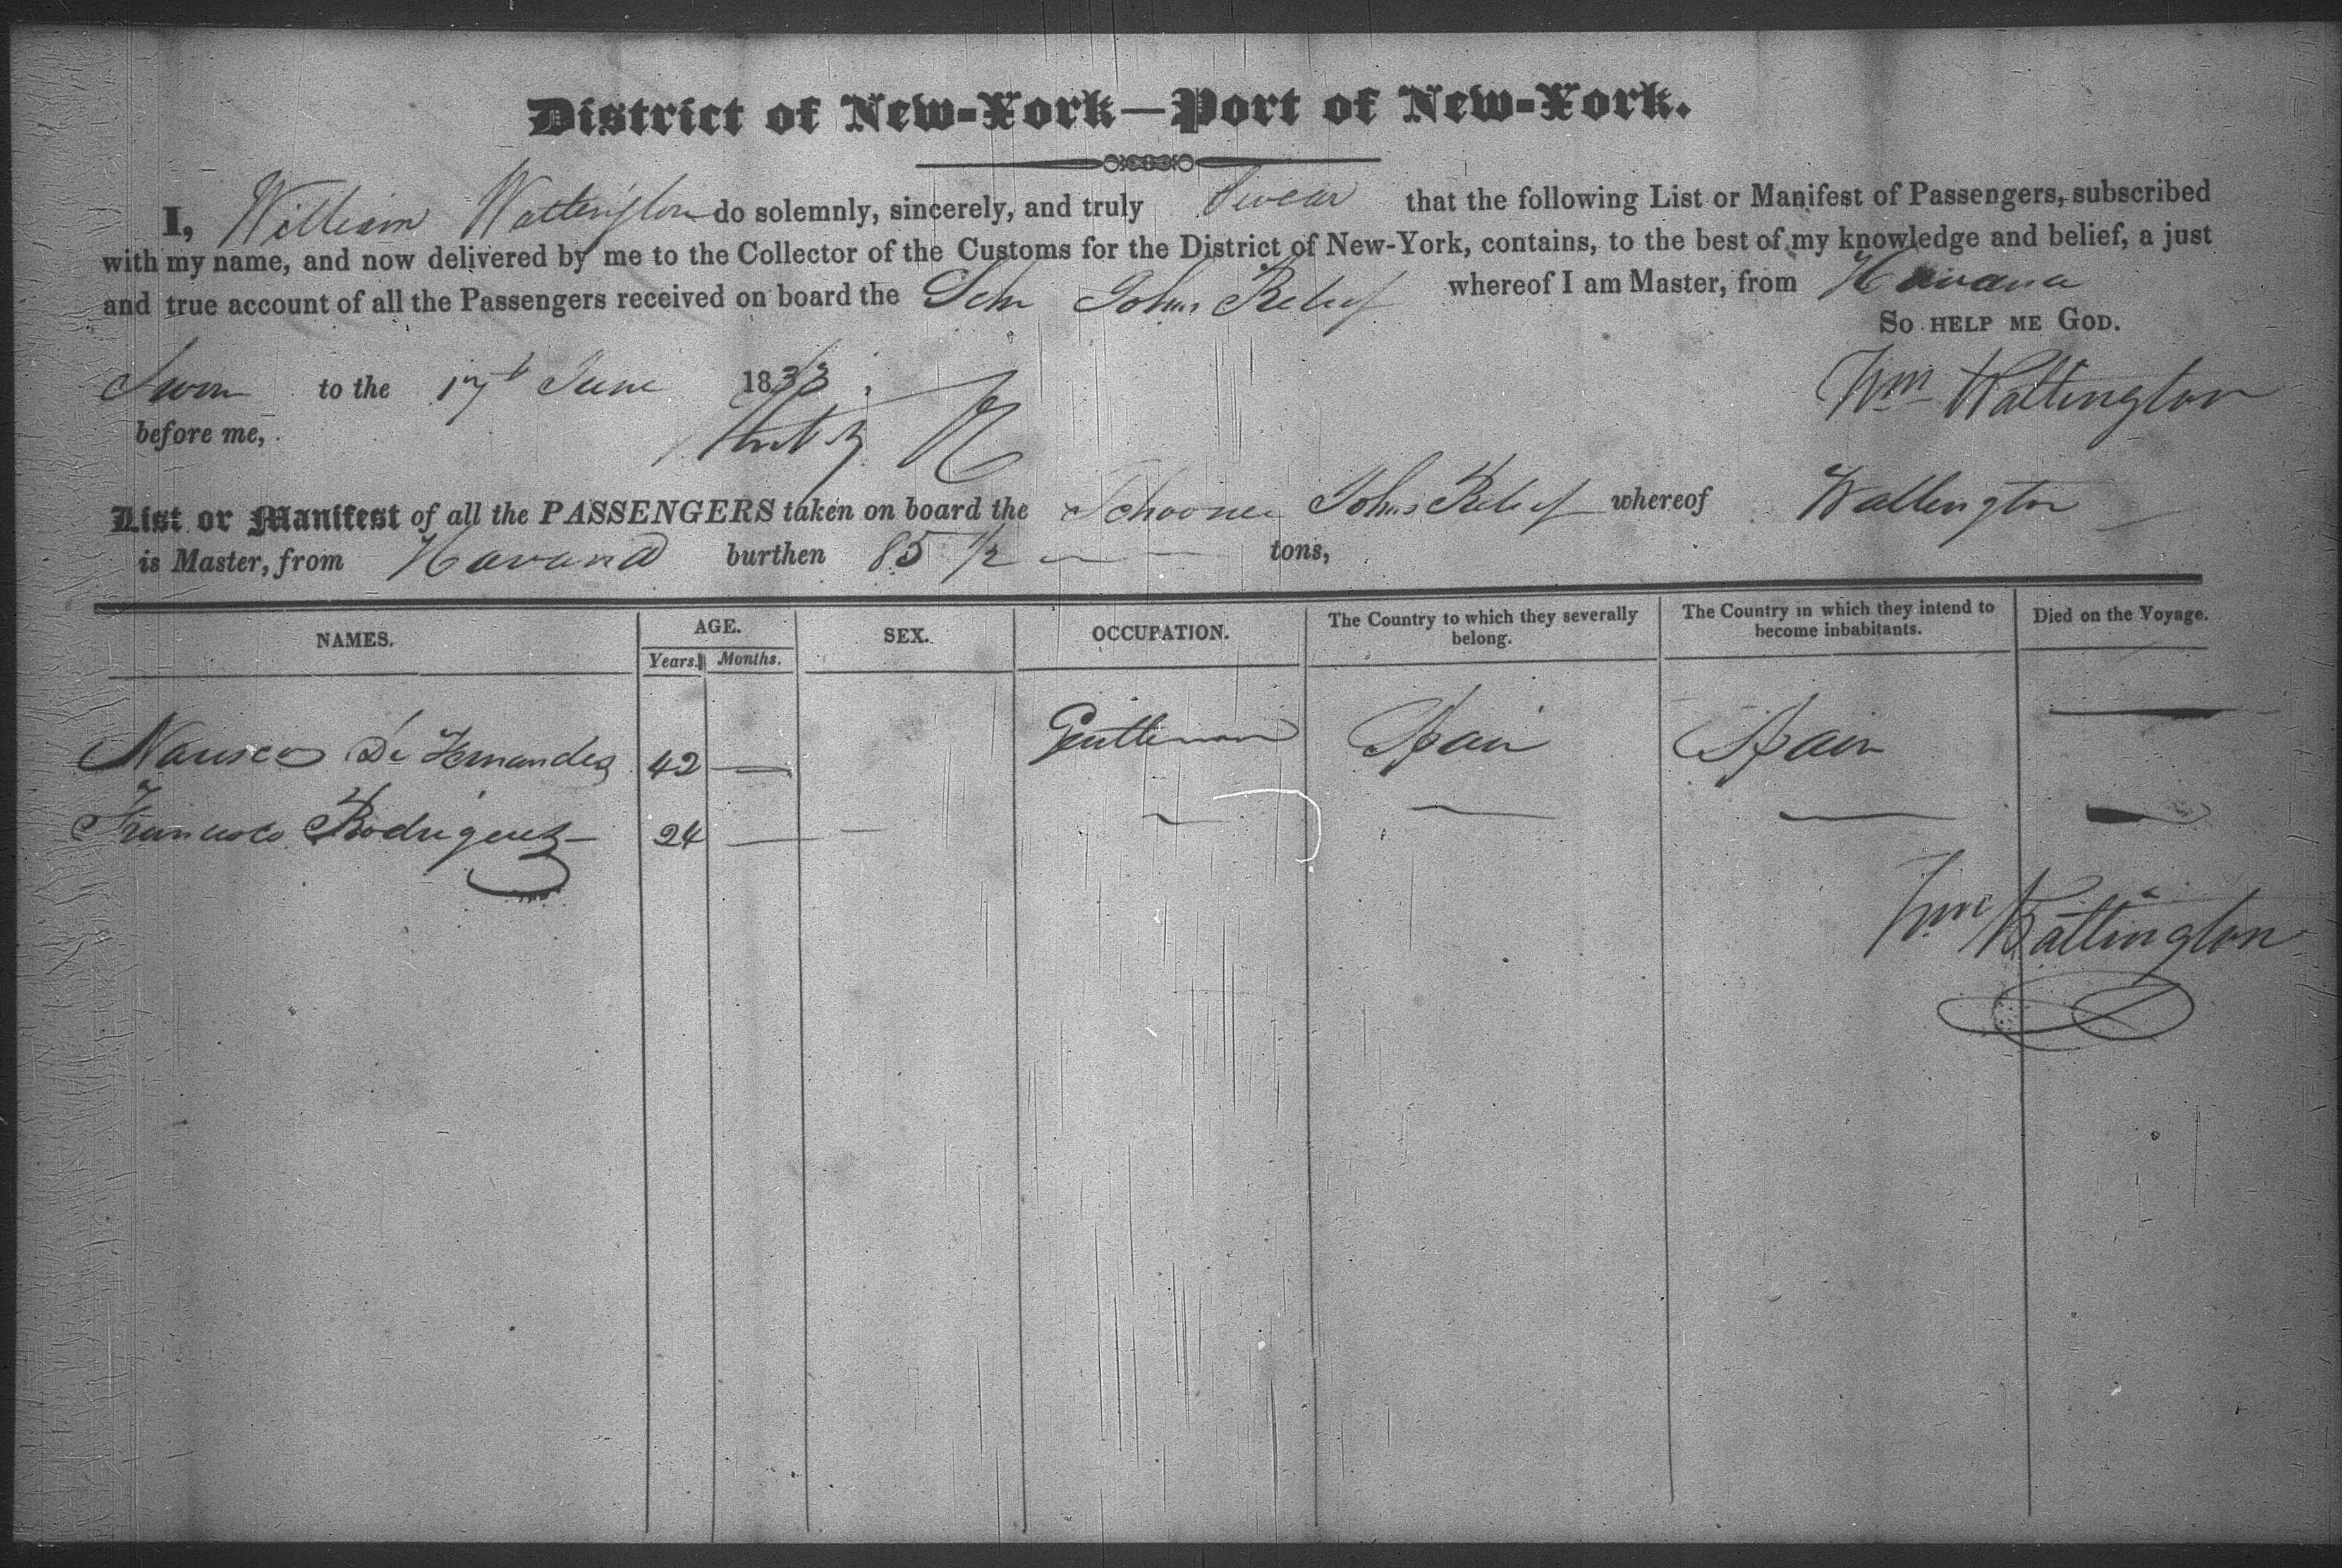 District of New-York—Port of New-York.
I, William Wattington do solemnly, sincerely, and truly Swear that the following List or Manifest of Passengers, subscribed
with my name, and now delivered by me to the Collector of the Customs for the District of New-York, contains, to the best of my knowledge and belief, a just
and true account of all the Passengers received on board the Schr Johns Relief whereof I am Master, from Havana
So help me God.
Sworn to the 17th June 1833.
before me,
Wm Wattington
List or Manifest of all the PASSENGERS taken on board the Schooner Johns Relief whereof Wattington
is Master, from Havana burthen 85 1/2 tons,
NAMES. AGE. SEX. OCCUPATION. The Country to which they severally belong. The Country in which they intend to become inhabitants. Died on the Voyage.
Years. Months.
De Fernandes 42 — Gentleman Spain Spain —
Francisco Rodriguez 24 — — — — —
Wm Wattington